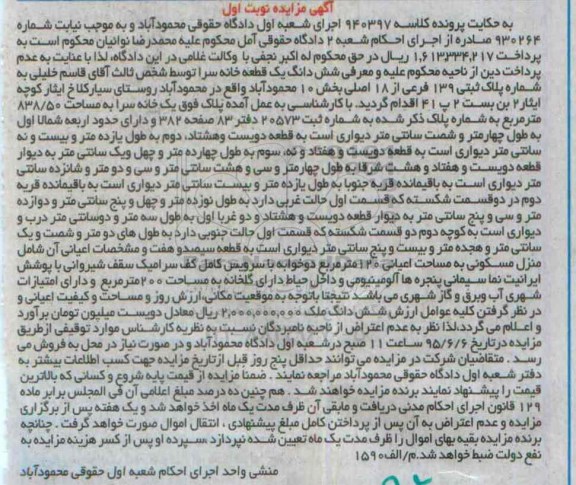 آگهی مزایده نوبت اول
به حکایت پرونده کلاسه ۹۴۰۳۹۷ اجرای شعبه اول دادگاه حقوقی محمودآباد و به موجب نیابت شماره
۹۳۰۲۶۴ صادره از اجرای احکام شعبه ۲ دادگاه حقوقی آمل محکوم علیه محمدرضا نوائیان محکوم است به
پرداخت ۱,۶۱۳,۳۳۴,۲۱۷ ریال در حق محکوم له اکبر نجفی با وکالت غلامی در این دادگاه، لذا با عنایت به عدم
پرداخت دین از ناحیه محکوم علیه و معرفی شش دانگ یک قطعه خانه سرا توسط شخص ثالث آقای قاسم خلیلی به
شماره پلاک ثبتی ۱۳۹ فرعی از ۱۸ اصلی بخش ۱۰ محمودآباد واقع در محمودآباد روستای سیارکلا خ ایثار کوچه
ایثار ۲ بن بست ۲ پ ۴۱ اقدام گردید. با کارشناسی به عمل آمده پلاک فوق یک خانه سرا به مساحت ۸۳۸/۵۰
مترمربع به شماره پلاک ذکر شده به شماره ثبت ۲۰۵۷۳ دفتر ۸۳ صفحه ۳۸۲ و دارای حدود اربعه شمالا اول
به طول چهارمتر و شصت سانتی متر دیواری است به قطعه دویست وهشتاد، دوم به طول یازده متر و بیست و نه
سانتی متر دیواری است به قطعه دویست و هفتاد و نه، سوم به طول چهارده متر و چهل ویک سانتی متر به دیوار
قطعه دویست و هفتاد و هشت شرقا به طول چهارمتر و سی و هشت سانتی متر و سی و دو متر و شانزده سانتی
متر دیواری است به باقیمانده قریه جنوبا به طول یازده متر و بیست سانتی متر دیواری است به باقیمانده قریه
دوم در دوقسمت شکسته که قسمت اول حالت غربی دارد به طول نوزده متر و چهل و پنج سانتی متر و دوازده
متر و سی و پنج سانتی متر به دیوار قطعه دویست و هشتاد و دو غربا اول به طول سه متر و دوسانتی متر درب و
دیواری است به کوچه دوم دو قسمت شکسته که قسمت اول حالت جنوبی دارد به طول های دو متر و شصت و یک
سانتی متر و هجده متر و بیست و پنج سانتی متر دیواری است به قطعه سیصدو هفت و مشخصات اعیانی آن شامل
منزل مسکونی به مساحت اعیانی ۱۲۰ مترمربع دوخوابه با سرویس کامل کف سرامیک سقف شیروانی با پوشش
ایرانیت نما سیمانی پنجره ها آلومینیومی و داخل حیاط دارای گلخانه به مساحت ۲۰۰ مترمربع و دارای امتیازات
شهری آب وبرق و گاز شهری می باشد نتیجتا باتوجه به موقعیت مکانی، ارزش روز و مساحت و کیفیت اعیانی و
در نظر گرفتن کلیه عوامل ارزش شش دانگ ملک ۲,۰۰۰,۰۰۰,۰۰۰ ریال معادل دویست میلیون تومان برآورد
و اعلام می گردد، لذا نظر به عدم اعتراض از ناحیه نامبردگان نسبت به نظریه کارشناس موارد توقیفی ازطریق
مزایده درتاریخ ۹۵/۶/۶ ساعت ۱۱ صبح درشعبه اول دادگاه محمودآباد و درصورت نیاز در محل به فروش می
رسد . متقاضیان شرکت در مزایده می توانند حداقل پنج روز قبل ازتاریخ مزایده جهت کسب اطلاعات بیشتر به
دفتر شعبه اول دادگاه حقوقی محمودآباد مراجعه نمایند . ضمنا مزایده از قیمت پایه شروع و کسانی که بالاترین
قیمت را پیشنهاد نمایند برنده مزایده خواهند شد . هم چنین ده درصد مبلغ اعلامی آن فی المجلس برابر ماده
۱۲۹ قانون اجرای احکام مدنی دریافت و مابقی آن ظرف مدت یک ماه اخذ خواهد شد و یک هفته پس از برگزاری
مزایده و عدم اعتراض به آن پس از پرداختن کامل مبلغ پیشنهادی ، انتقال اموال صورت خواهد گرفت . چنانچه
برنده مزایده بقیه بهای اموال را ظرف مدت یک ماه تعیین شده نپردازد ،سپرده او پس از کسر هزینه مزایده به
نفع دولت ضبط خواهد شد.م/الف۱۵۹۰
منشی واحد اجرای احکام شعبه اول حقوقی محمودآباد